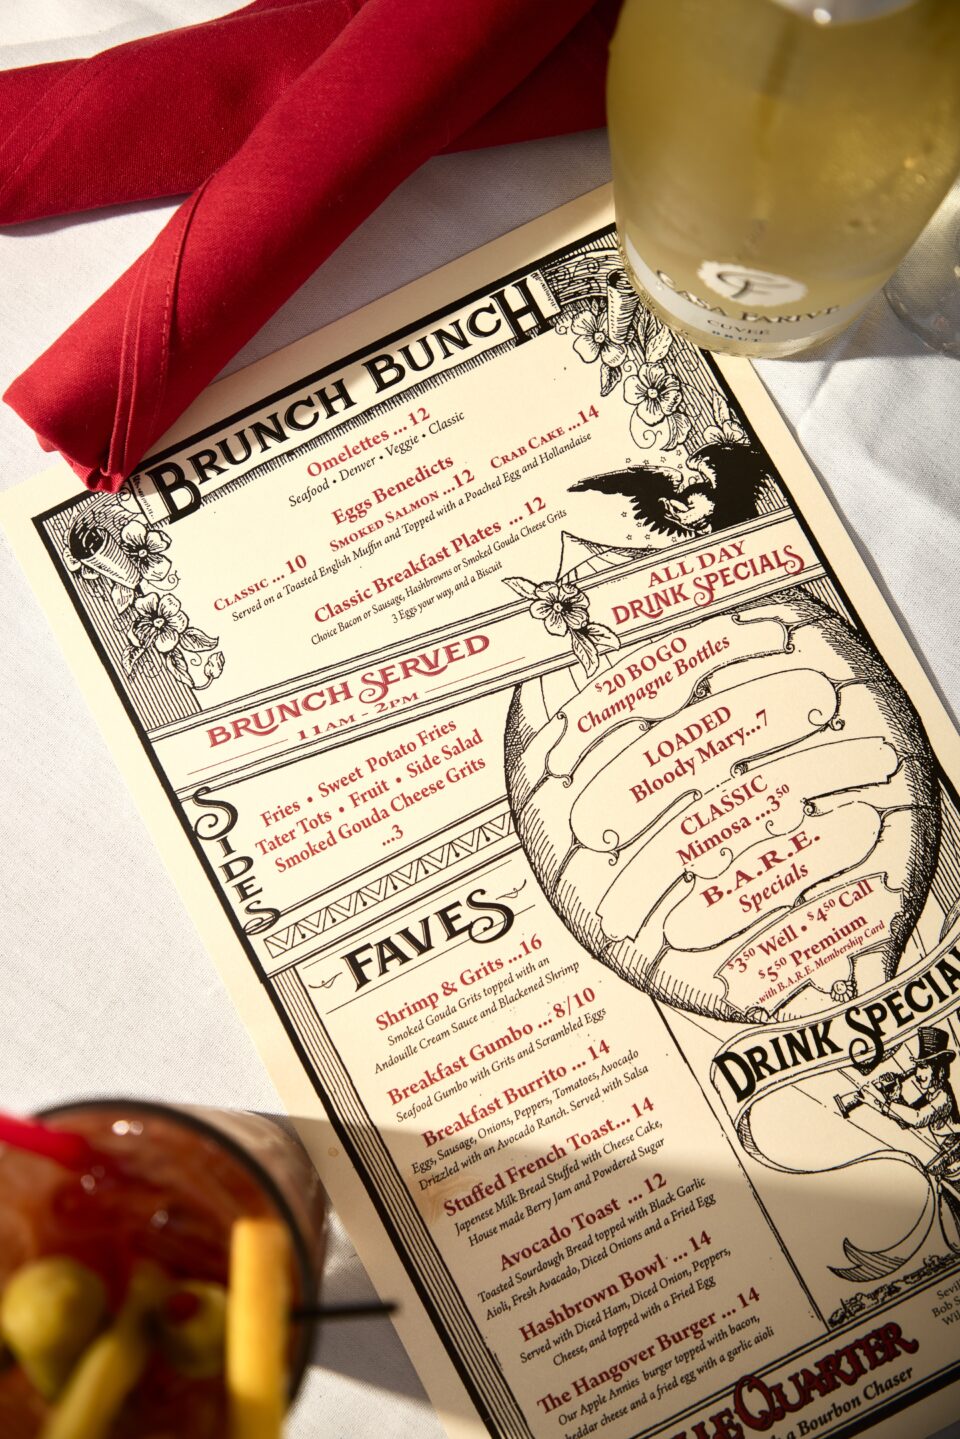 BRUNCH BUNCH
Omelettes ... 12
Seafood • Denver • Veggie • Classic
Eggs Benedicts
Classic ... 10 Smoked Salmon ...12 Crab Cake ...14
Served on a Toasted English Muffin and Topped with a Poached Egg and Hollandaise
Classic Breakfast Plates ... 12
Choice Bacon or Sausage, Hashbrowns or Smoked Gouda Cheese Grits
3 Eggs your way, and a Biscuit
BRUNCH SERVED
11AM - 2PM
SIDES
Fries • Sweet Potato Fries
Tater Tots • Fruit • Side Salad
Smoked Gouda Cheese Grits
...3
FAVES
Shrimp & Grits ...16
Smoked Gouda Grits topped with an
Andouille Cream Sauce and Blackened Shrimp
Breakfast Gumbo ... 8/10
Seafood Gumbo with Grits and Scrambled Eggs
Breakfast Burrito ... 14
Eggs, Sausage, Onions, Peppers, Tomatoes, Avocado
Drizzled with an Avocado Ranch. Served with Salsa
Stuffed French Toast... 14
Japenese Milk Bread Stuffed with Cheese Cake,
House made Berry Jam and Powdered Sugar
Avocado Toast ... 12
Toasted Sourdough Bread topped with Black Garlic
Aioli, Fresh Avacado, Diced Onions and a Fried Egg
Hashbrown Bowl ... 14
Served with Diced Ham, Diced Onion, Peppers,
Cheese, and topped with a Fried Egg
The Hangover Burger ... 14
Our Apple Annies burger topped with bacon,
heddar cheese and a fried egg with a garlic aioli
ALL DAY
DRINK SPECIALS
$20 BOGO
Champagne Bottles
LOADED
Bloody Mary...7
CLASSIC
Mimosa ...3.50
B.A.R.E.
Specials
$3.50 Well • $4.50 Call
$5.50 Premium
with B.A.R.E. Membership Card
DRINK SPECIA
Sevil
Bob S
Wil
LLE QUARTER
a Bourbon Chaser
CASA FARIVE
CUVEE
BRUT